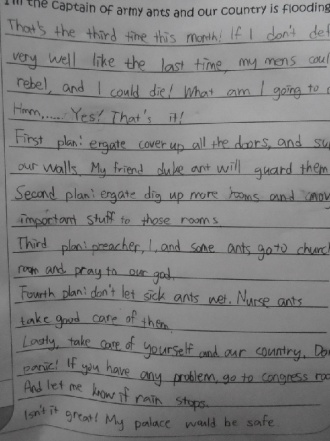 I'm the captain of army ants and our country is flooding
That's the third time this month! If I don't
very well like the last time, my mens
rebel, and I could die! What am I going to
Hmm,..... Yes! That's it!
First plan: ergate cover up all the doors, and
our walls. My friend duke ant will guard them
Second plan: ergate dig up more rooms and
important stuff to those rooms.
Third plan: preacher, I, and some ants go to church
room and pray to our god.
Fourth plan: don't let sick ants wet. Nurse ants
take good care of them.
Lastly, take care of yourself and our country. 
panic! If you have any problem, go to congress
And let me know if rain stops.
Isn't it great! My palace would be safe